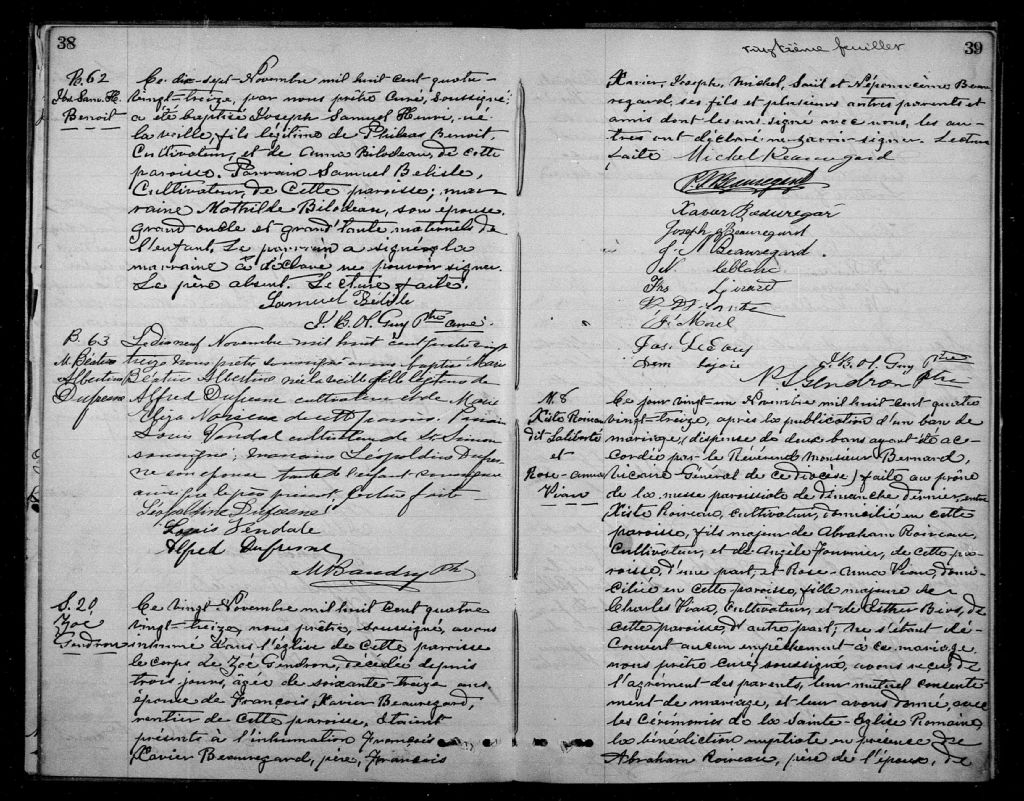 38
B. 62
Jos. Sam. H.
Benoit
Ce dix-sept Novembre mil huit cent quatre-
vingt-treize, par nous prêtre curé, soussigné,
a été baptisé Joseph Samuel Henri, né
la veille, fils légitime de Philéas Benoit,
Cultivateur, et de Anna Bilodeau, de cette
paroisse. Parrain Samuel Belisle,
Cultivateur, de Cette paroisse; mar-
raine Mathilde Bilodeau, son épouse,
grand oncle et grand'tante maternels de
l'enfant. Le parrain a signé, la
marraine a déclaré ne pouvoir signer.
Le père absent. Lecture faite.
Samuel Bélisle
J. B. H. Guy Ptre curé.
B. 63
M. Béatrice
Albertine
Dufresne
Le dix neuf Novembre mil huit cent quatre vingt
treize nous prêtre soussigné avons baptisé Marie
Béatrice Albertine née la veille fille légitime de
Alfred Dufresne cultivateur et de Marie
Eliza de cette paroisse. Parrain
Louis Vandal cultivateur de St Simon
soussigné; marraine Léopoldine Dufres-
ne son épouse tante de l'enfant soussignée
ainsi que le père présent. Lecture faite
Léopoldine Dufresne
Louis Vendale
Alfred Dufresne
Baudry Ptr
S. 20
Zoé
Gendron
Ce vingt Novembre mil huit cent quatre
vingt-treize, nous prêtre, soussigné, avons
inhumé dans l'église de Cette paroisse
le corps de Zoé Gendron, décédée depuis
trois jours, âgée de soixante-treize ans,
épouse de François Xavier Beauregard,
rentier de Cette paroisse. Etaient
présents à l'inhumation François
Xavier Beauregard, père, François
feuillet
39
Xavier, Joseph, Michel, Saül et Népomucène Beau-
regard, ses fils et plusieurs autres parents et
amis dont les uns signé avec nous, les au-
tres ont déclaré ne savoir signer. Lecture
faite Michel Beauregard
Beauregard
Xavier Beauregar
Joseph Beauregard
J. N Beauregard.
leblanc
Girard
Morel
Jos.
Lajoie
J. B. H. Guy Ptre
Gendron Ptre
M. 8
Xiste Roireau
dit Laliberté
et
Rose-Anna
Vian
Ce jour vingt-un Novembre mil huit cent quatre
vingt-treize, après la publication d'un ban de
mariage, (dispense de deux bans ayant été ac-
cordée par le Révérend Monsieur Bernard,
vicaire Général de ce diocèse) faite au prône
de la messe paroissiale de dimanche dernier, entre
Xiste Roireau, cultivateur, domicilié en cette
paroisse, fils majeur de Abraham Roireau,
Cultivateur, et de Angèle Fournier, de cette pa-
roisse, d'une part, et Rose-Anna Vian, domi-
ciliée en cette paroisse, fille majeure de
Charles Vian, Cultivateur, et de Esther Bira, de
cette paroisse, d'autre part; ne s'étant dé-
couvert aucun empêchement à ce mariage
nous prêtre curé, soussigné, avons reçu, de
l'agrément des parents, leur mutuel consente-
ment de mariage, et leur avons donné, avec
les Cérémonies de la Sainte-Eglise Romaine,
la bénédiction nuptiale en présence de
Abraham Roireau, père de l'époux, de